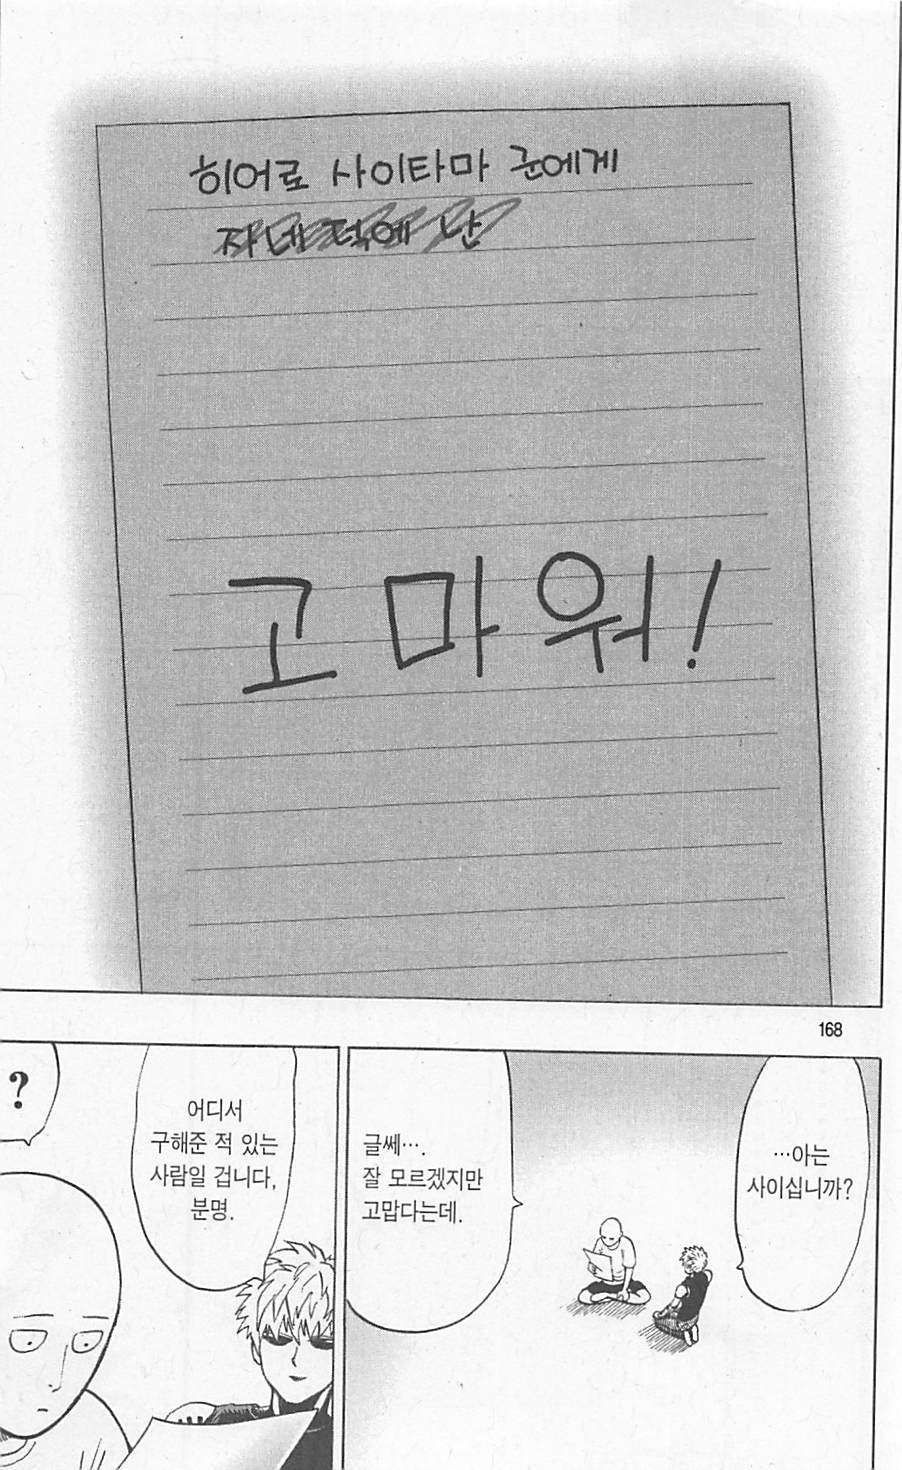 히어로 사이타마 군에게
자네 덕에 난
고마워!
168
…아는
사이십니까?
글쎄….
잘 모르겠지만
고맙다는데.
어디서
구해준 적 있는
사람일 겁니다,
분명.
?